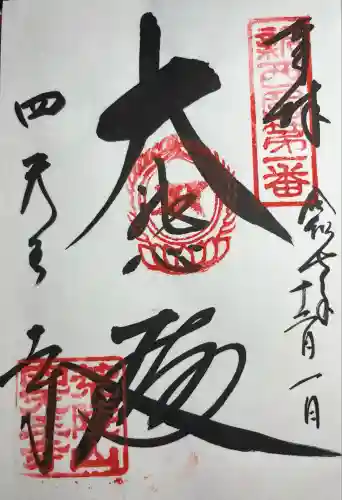 奉拝
新西国第一番
令和七年十二月一日
大悲殿
四天王寺
荒陵山